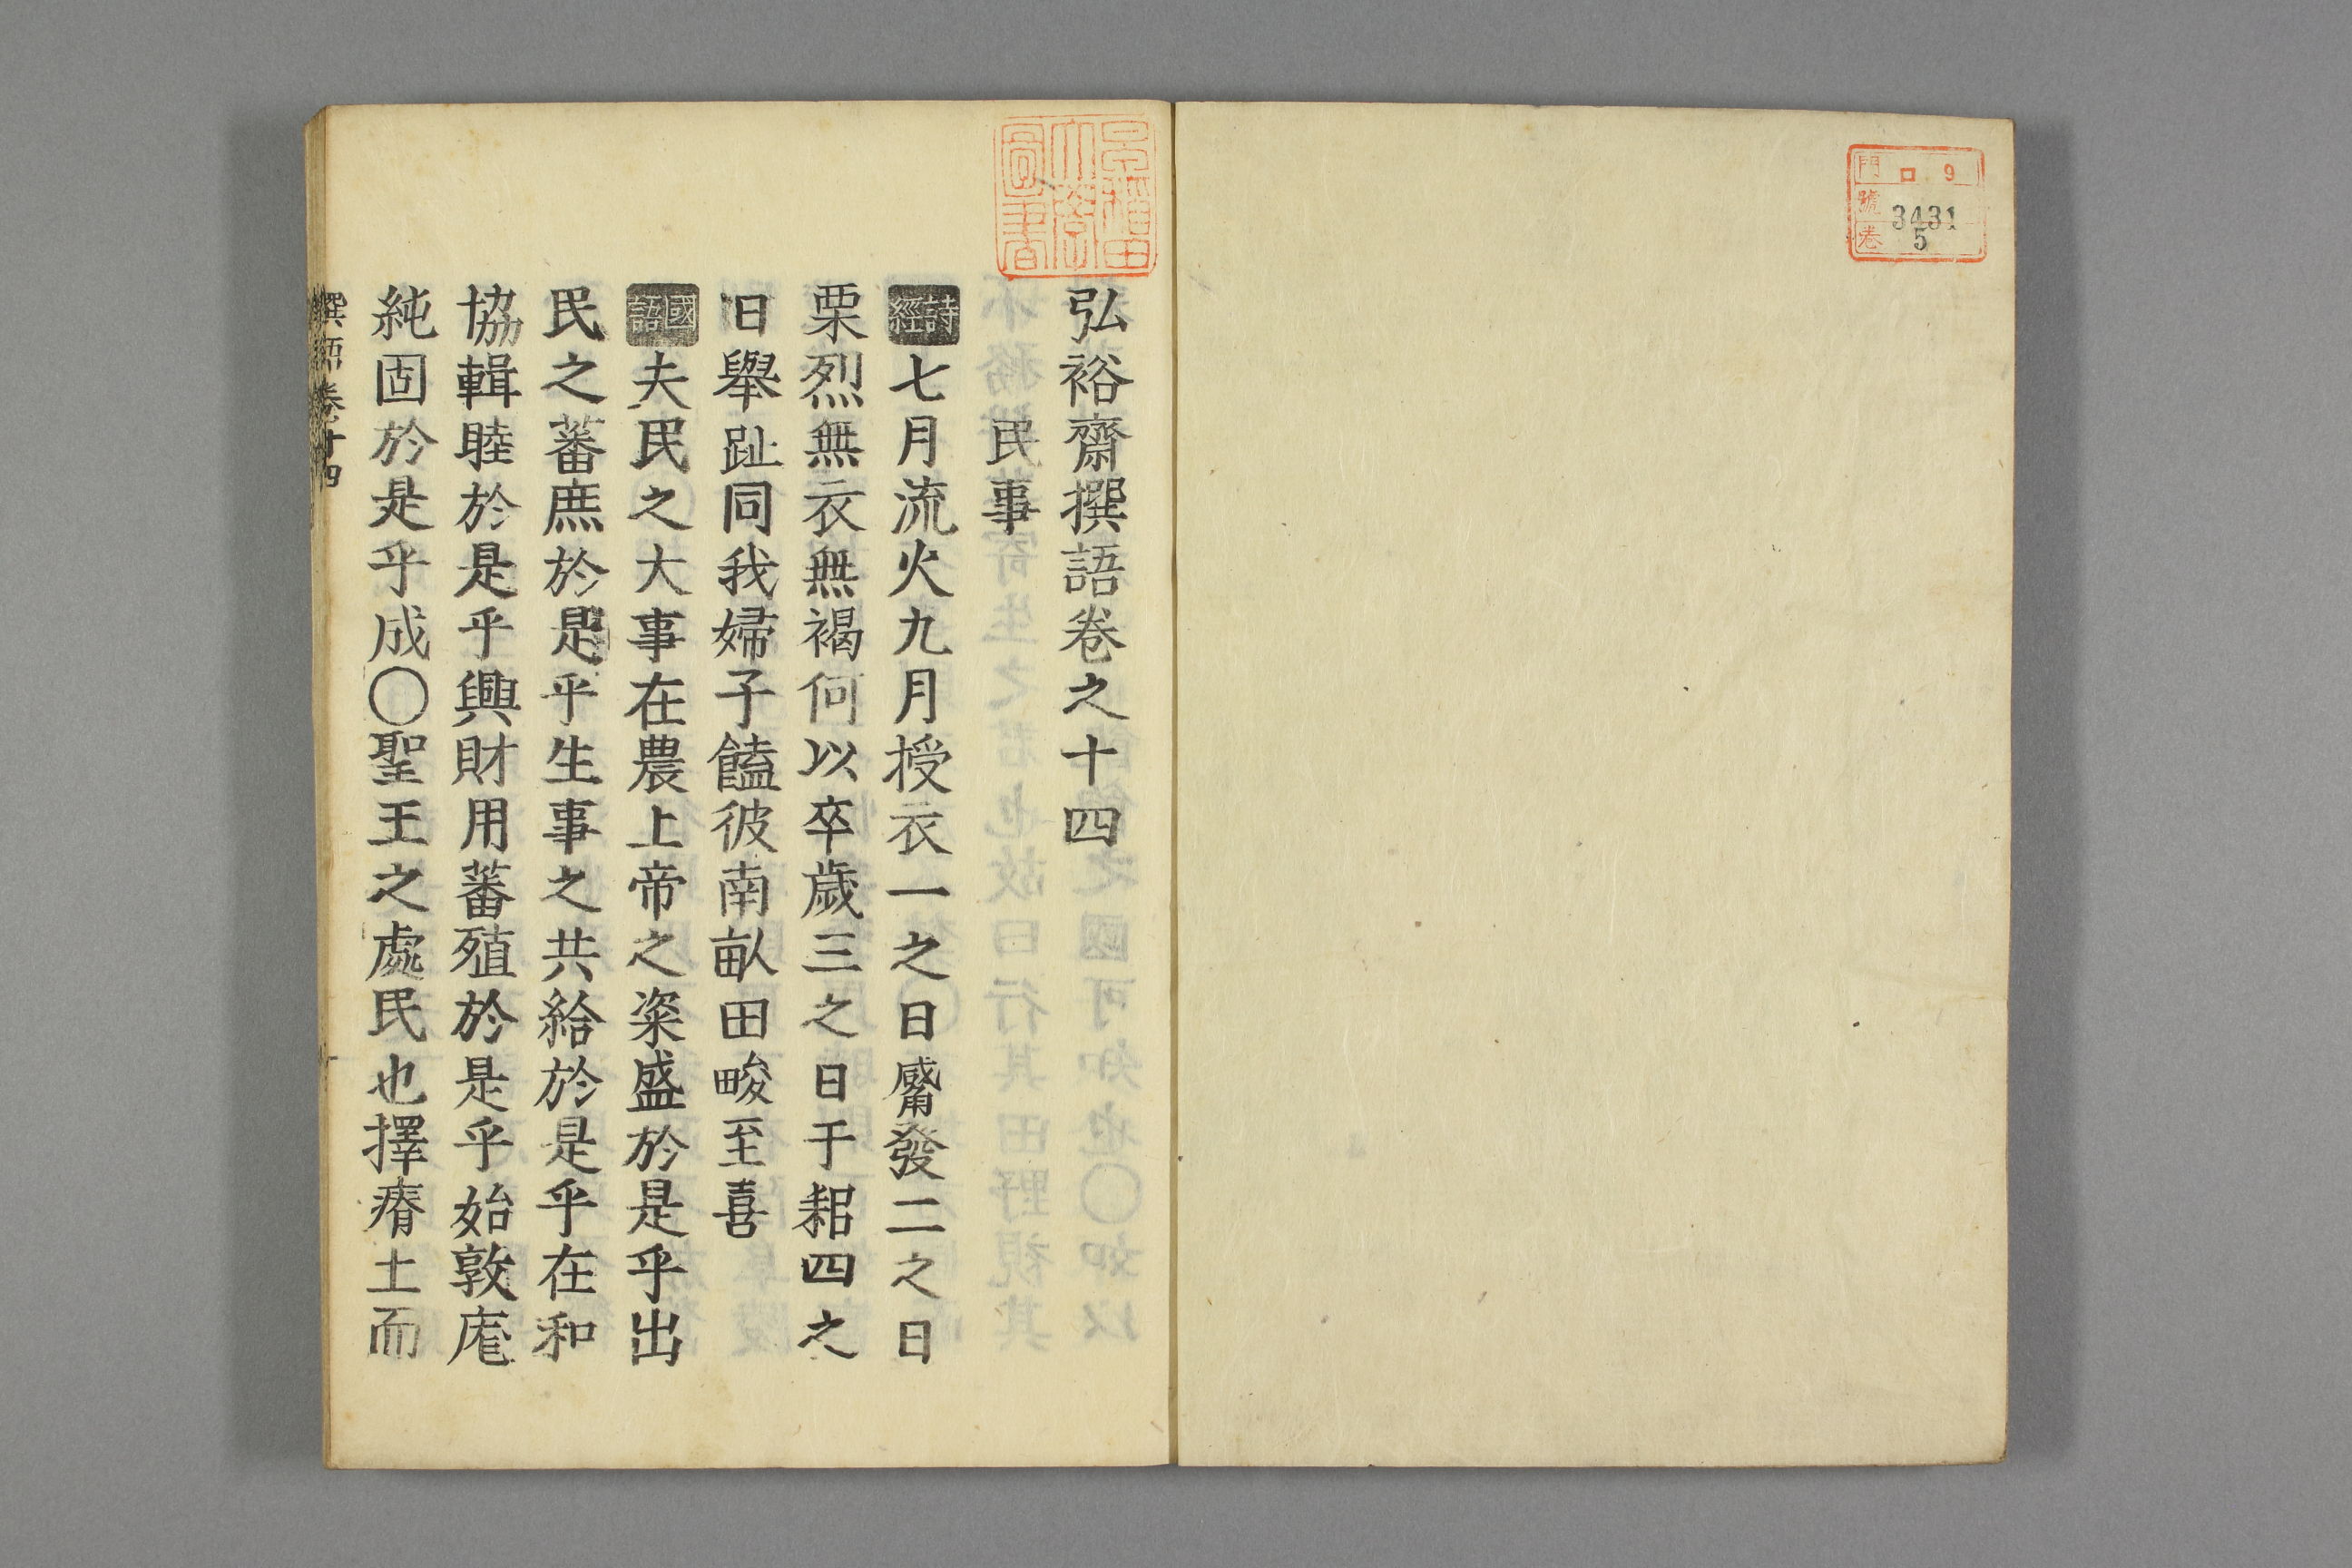 門 ロ 9
號 3431
卷 5
早稲田大學圖書
弘裕齋撰語卷之十四
民事
詩經 七月流火九月授衣一之日觱發二之日
栗烈無衣無褐何以卒歲三之日于耜四之
日舉趾同我婦子饁彼南畝田畯至喜
國語 夫民之大事在農上帝之粢盛於是乎出
民之蕃庶於是乎生事之共給於是乎在和
協輯睦於是乎興財用蕃殖於是乎始敦庬
純固於是乎成〇聖王之處民也擇瘠土而
撰語卷之十四